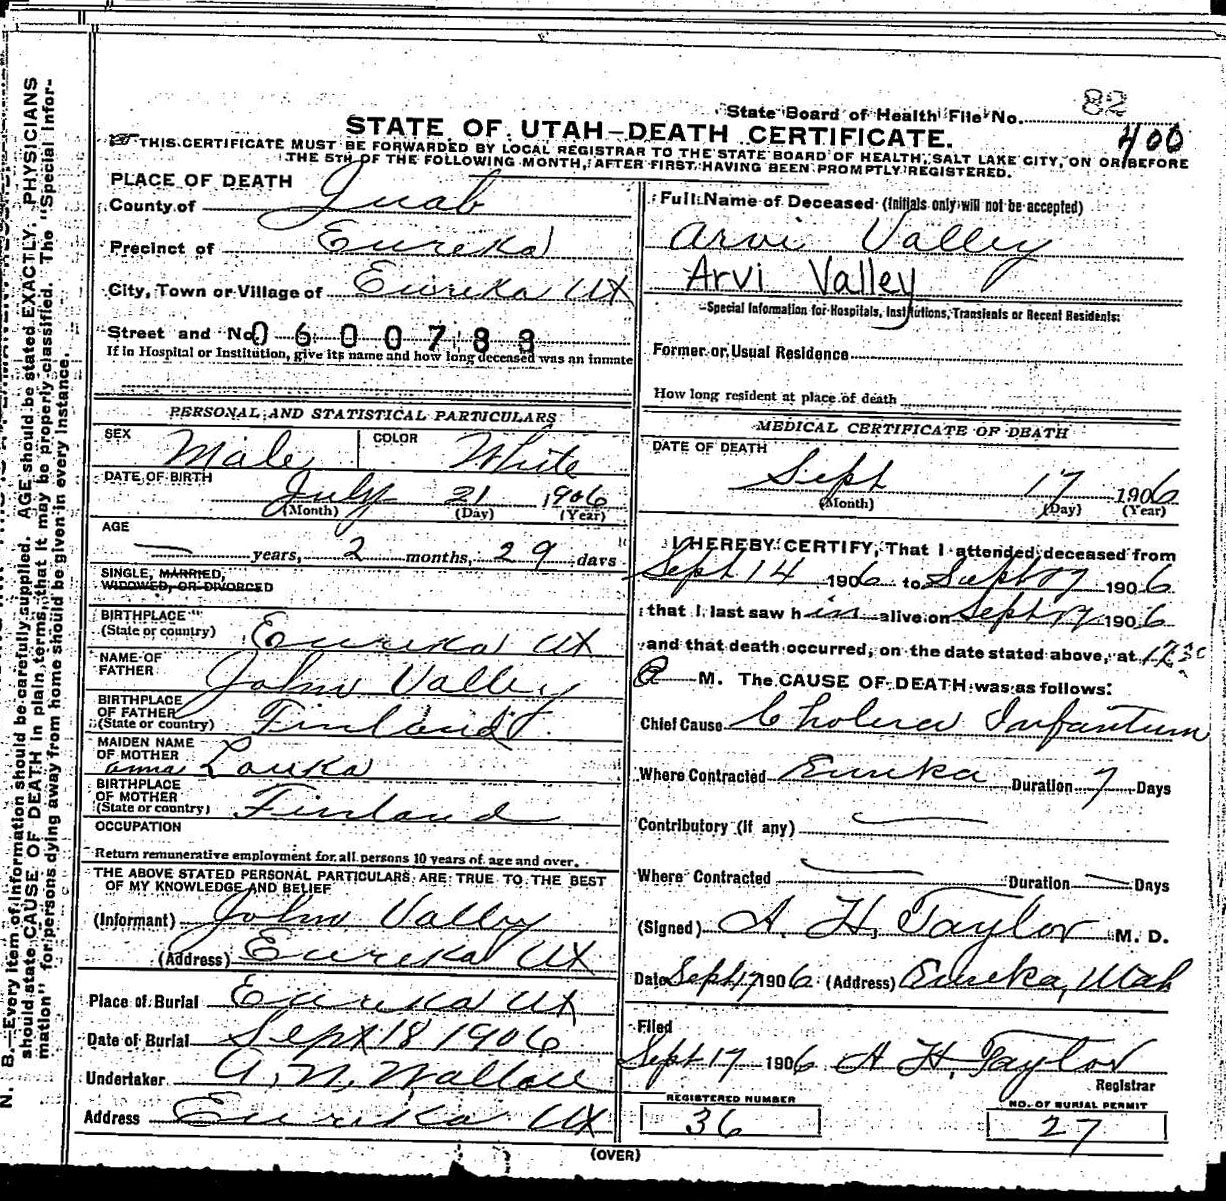 State Board of Health File No. 82
400
STATE OF UTAH—DEATH CERTIFICATE.
THIS CERTIFICATE MUST BE FORWARDED BY LOCAL REGISTRAR TO THE STATE BOARD OF HEALTH, SALT LAKE CITY, ON OR BEFORE
THE 5TH OF THE FOLLOWING MONTH, AFTER FIRST HAVING BEEN PROMPTLY REGISTERED.
PLACE OF DEATH
County of Juab
Precinct of Eureka
City, Town or Village of Eureka Ut
Street and No. 0600783
If in Hospital or Institution, give its name and how long deceased was an inmate
Full Name of Deceased (Initials only will not be accepted)
Arvi Valley
Arvi Valley
Special Information for Hospitals, Institutions, Transients or Recent Residents:
Former or Usual Residence
How long resident at place of death
PERSONAL AND STATISTICAL PARTICULARS
SEX Male COLOR White
DATE OF BIRTH July 21 1906
(Month) (Day) (Year)
AGE
— years, 2 months, 29 days
SINGLE, MARRIED,
WIDOWED, OR DIVORCED
BIRTHPLACE
(State or country) Eureka Ut
NAME OF
FATHER John Valley
BIRTHPLACE
OF FATHER
(State or country) Finland
MAIDEN NAME
OF MOTHER Anna Louka
BIRTHPLACE
OF MOTHER
(State or country) Finland
OCCUPATION
Return remunerative employment for all persons 10 years of age and over.
THE ABOVE STATED PERSONAL PARTICULARS ARE TRUE TO THE BEST
OF MY KNOWLEDGE AND BELIEF
(Informant) John Valley
(Address) Eureka Ut
Place of Burial Eureka Ut
Date of Burial Sept 18 1906
Undertaker A. N. Wallace
Address Eureka Ut
MEDICAL CERTIFICATE OF DEATH
DATE OF DEATH
Sept 17 1906
(Month) (Day) (Year)
I HEREBY CERTIFY, That I attended deceased from
Sept 14 1906 to Sept 17 1906
that I last saw him alive on Sept 17 1906
and that death occurred, on the date stated above, at 12 30
P M. The CAUSE OF DEATH was as follows:
Chief Cause Cholera Infantum
Where Contracted Eureka Duration 7 Days
Contributory (if any) —
Where Contracted — Duration — Days
(Signed) A. H. Taylor M. D.
Date Sept 17 1906 (Address) Eureka, Utah
Filed
Sept 17 1906 A H. Taylor
Registrar
REGISTERED NUMBER
36
NO. OF BURIAL PERMIT
27
(OVER)
N. B.—Every item of information should be carefully supplied. AGE should be stated EXACTLY. PHYSICIANS
should state CAUSE OF DEATH in plain terms, that it may be properly classified. The "Special Infor-
mation" for persons dying away from home should be given in every instance.